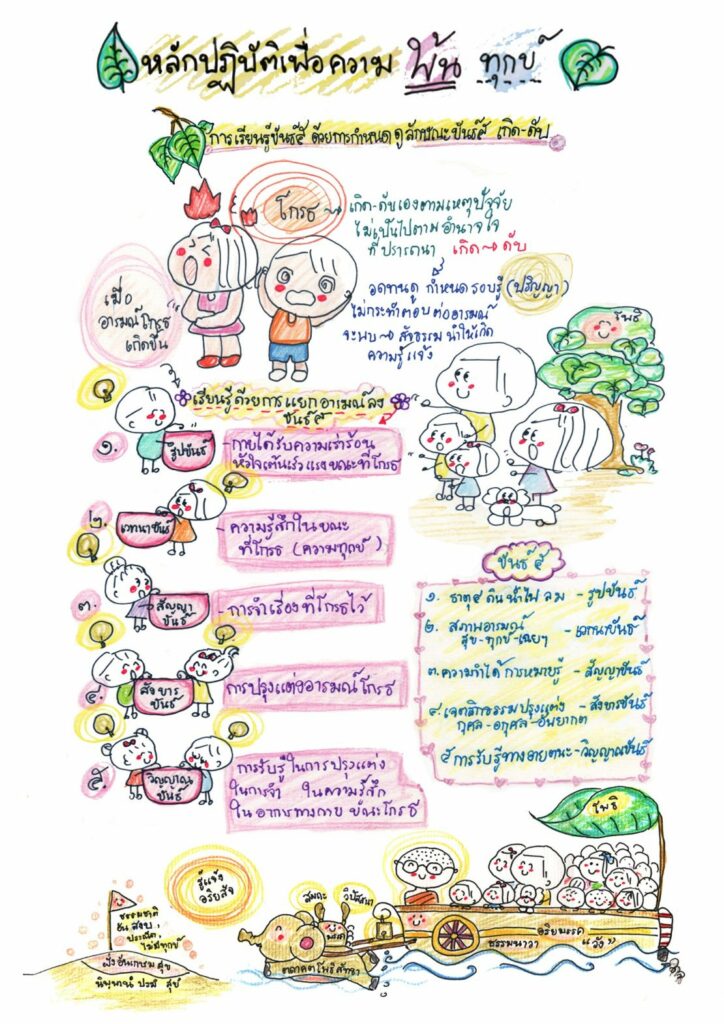 หลักปฏิบัติเพื่อความ พ้น ทุกข์
การเรียนรู้ขันธ์๕ ด้วยการกำหนด ดูลักษณะขันธ์๕ เกิด-ดับ
โกรธ
เกิด-ดับเองตามเหตุปัจจัย
ไม่เป็นไปตาม อำนาจใจ
ที่ปรารถนา เกิด → ดับ
เมื่อ
อารมณ์โกรธ
เกิดขึ้น
อดทนดู กำหนดรอบรู้ (ปริญญา)
ไม่กระทำตอบต่ออารมณ์
จะพบ → สัจธรรม นำให้เกิด
ความรู้แจ้ง
โพธิ
เรียนรู้ด้วยการแยกอารมณ์ลง
ขันธ์๕
๑.
รูปขันธ์
- กายได้รับความเร่าร้อน
หัวใจเต้นเร็วแรงขณะที่โกรธ
๒.
เวทนาขันธ์
- ความรู้สึกในขณะ
ที่โกรธ (ความทุกข์)
๓.
สัญญา
ขันธ์
- การจำเรื่องที่โกรธไว้
๔.
สังขาร
ขันธ์
การปรุงแต่งอารมณ์โกรธ
๕.
วิญญาณ
ขันธ์
การรับรู้ในการปรุงแต่ง
ในการจำ ในความรู้สึก
ในอาการทางกาย ขณะโกรธ
ขันธ์ ๕
๑. ธาตุ๔ ดิน น้ำ ไฟ ลม - รูปขันธ์
๒. สภาพอารมณ์
สุข-ทุกข์-เฉยๆ - เวทนาขันธ์
๓. ความจำได้ การหมายรู้ - สัญญาขันธ์
๔. เจตสิกธรรมปรุงแต่ง - สังขารขันธ์
กุศล-อกุศล-อัพยากต
๕ การรับรู้ทางอายตนะ - วิญญาณขันธ์
รู้แจ้ง
อริยสัจ
ธรรมชาติ
อัน สงบ,
ปราณีต,
ไม่มีทุกข์
ฝั่งอันเกษม สุข
นิพพานํ ปรมํ สุขํ
สมถะ
วิปัสสนา
มรรค
ตถาคตโพธิสัทธา
ธรรมนาวา
อริยมรรค
"วัง"
โพธิ